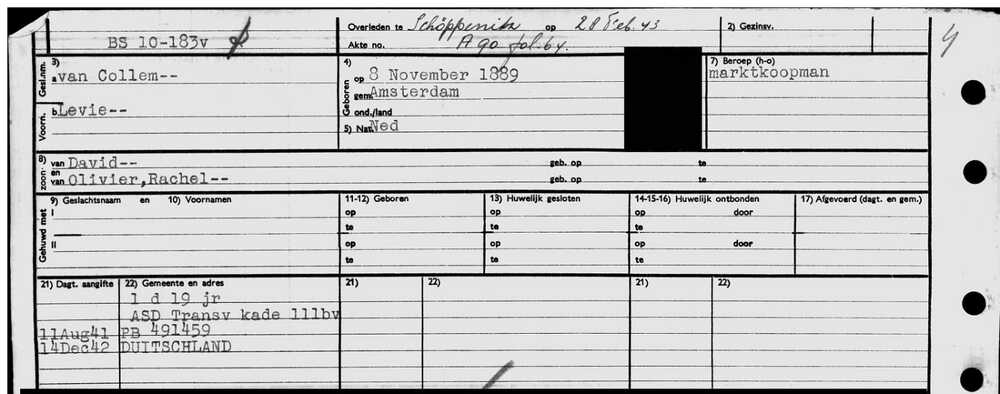 Overleden te Schöppenitz op 28 Feb. 43
2) Gezinsv.
BS 10-183v
Akte no. A 90 fol. 64.
3)
Gesl.nm.
a. van Collem--
4)
Geboren
op 8 November 1889
7) Beroep (h-o)
marktkoopman
gem. Amsterdam
Voorn.
b. Levie--
ond./land
5) Nat. Ned
8) van David-- geb. op te
zoon en
van Olivier,Rachel-- geb. op te
9) Geslachtsnaam en 10) Voornamen
11-12) Geboren
13) Huwelijk gesloten
14-15-16) Huwelijk ontbonden
17) Afgevoerd (dagt. en gem.)
Gehuwd met
I
op
op
op door
te
te
te
II
op
op
op door
te
te
te
21) Dagt. aangifte
22) Gemeente en adres
21)
22)
21)
22)
1 d 19 jr
ASD Transv kade 111bv
11Aug41 PB 491459
14Dec42 DUITSCHLAND